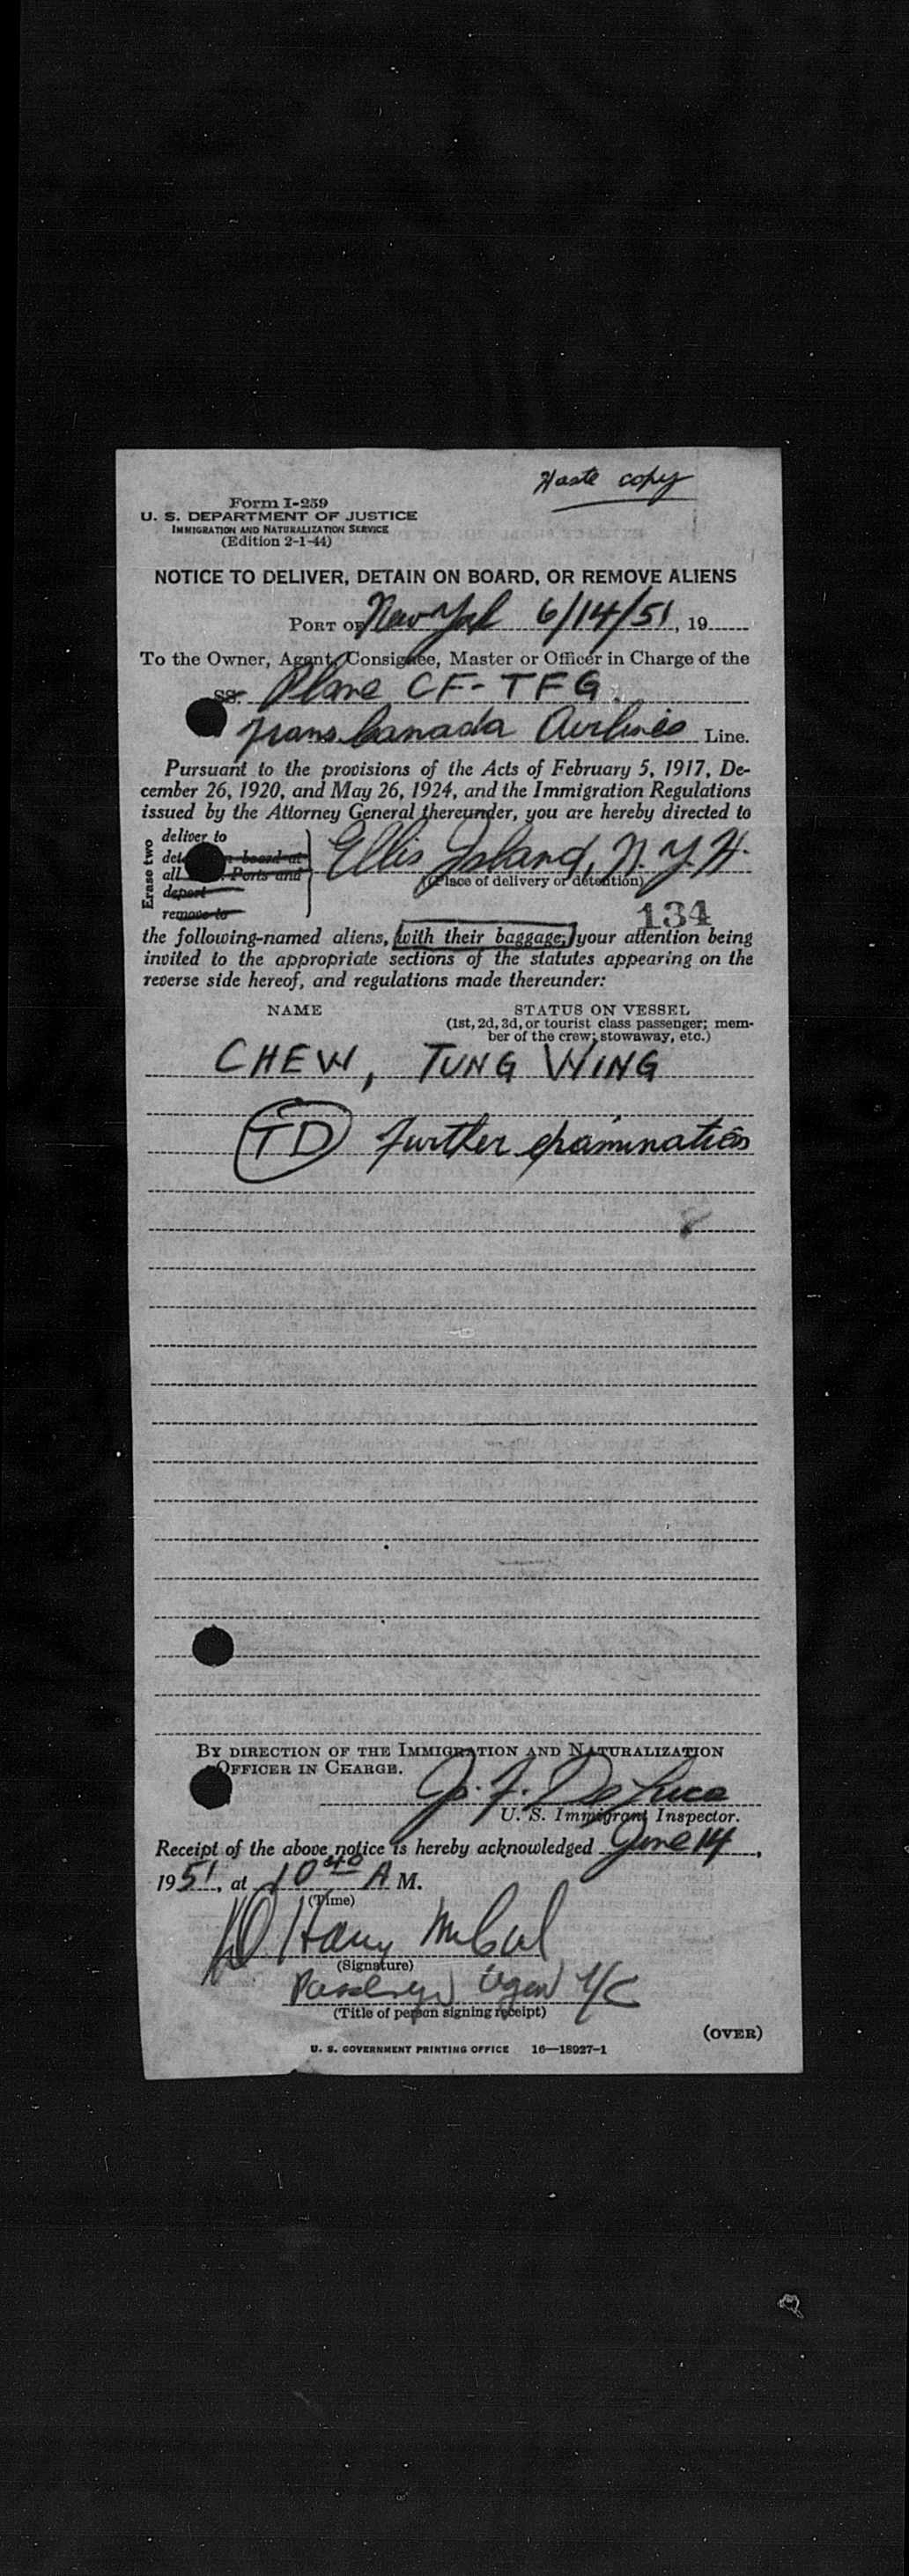 Haste copy
Form I-259
U. S. DEPARTMENT OF JUSTICE
IMMIGRATION AND NATURALIZATION SERVICE
(Edition 2-1-44)
NOTICE TO DELIVER, DETAIN ON BOARD, OR REMOVE ALIENS
PORT OF New York 6/14/51, 19
To the Owner, Agent, Consignee, Master or Officer in Charge of the
SS. Plane CF-TFG
Trans Canada Airlines Line.
Pursuant to the provisions of the Acts of February 5, 1917, De-
cember 26, 1920, and May 26, 1924, and the Immigration Regulations
issued by the Attorney General thereunder, you are hereby directed to
Erase two
deliver to
board at
all Ports and
deport
remove to
Ellis Island, N.Y.H.
(Place of delivery or detention)
134
the following-named aliens, with their baggage, your attention being
invited to the appropriate sections of the statutes appearing on the
reverse side hereof, and regulations made thereunder:
NAME STATUS ON VESSEL
(1st, 2d, 3d, or tourist class passenger; mem-
ber of the crew; stowaway, etc.)
CHEW, TUNG WING
TD further examination
BY DIRECTION OF THE IMMIGRATION AND NATURALIZATION
OFFICER IN CHARGE.
J. F. DeLuca
U. S. Immigrant Inspector.
Receipt of the above notice is hereby acknowledged June 14,
1951, at 10 40 A M.
(Time)
Harry
(Signature)
Agent
(Title of person signing receipt)
(OVER)
U. S. GOVERNMENT PRINTING OFFICE 16—18927-1